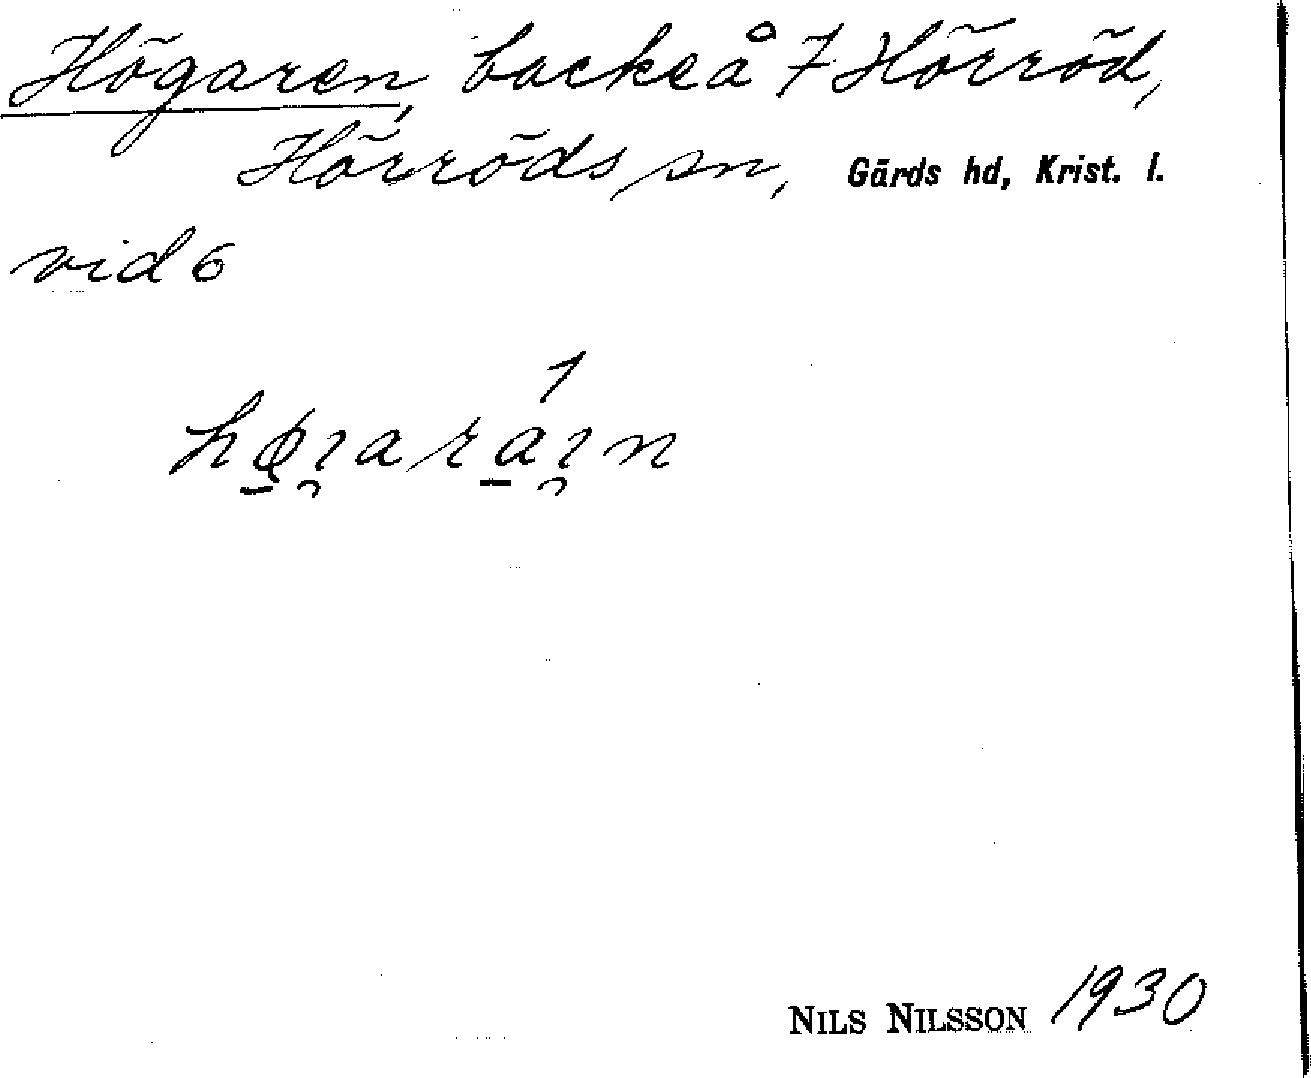 Högaren, backe å 7 Hörröd,
Hörröds sn, Gärds hd, Krist. l.
vid 6
NILS NILSSON 1930